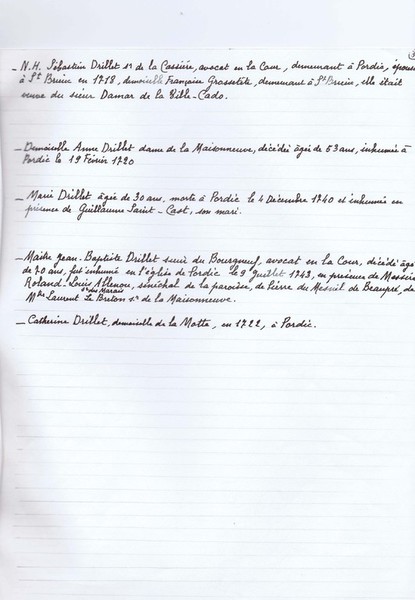 _ N.H. Sébastien Drillet sr de la Cassière, avocat en la Cour, demeurant à Pordic, épousa
à St Brieuc en 1718, demoiselle Françoise Grossetête, demeurant à St Brieuc, elle était
veuve du sieur Damar de la Ville-Cado.
_ Demoiselle Anne Drillet dame de la Maisonneuve, décédée âgée de 53 ans, inhumée à
Pordic le 19 Février 1720
_ Marie Drillet âgée de 30 ans, morte à Pordic le 4 Décembre 1740 et inhumée en
présence de Guillaume Saint-Cast, son mari.
_ Maître Jean-Baptiste Drillet sieur du Bourgneuf, avocat en la Cour, décédé âgé
de 70 ans, fut inhumé en l'église de Pordic le 9 Juillet 1743, en présence de Messire
Roland-Louis Allenou, sr des Marais sénéchal de la paroisse, de Pierre du Mesnil de Beaupré, de
Mtre Laurent Le Breton sr de la Maisonneuve.
_ Catherine Drillet, demoiselle de la Motte, en 1722, à Pordic.